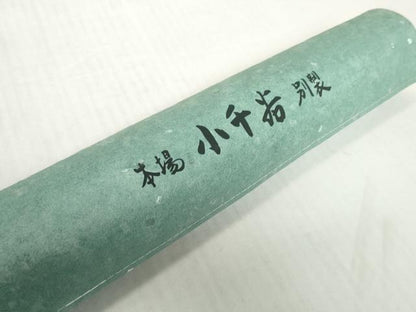 本場 小千谷 別製